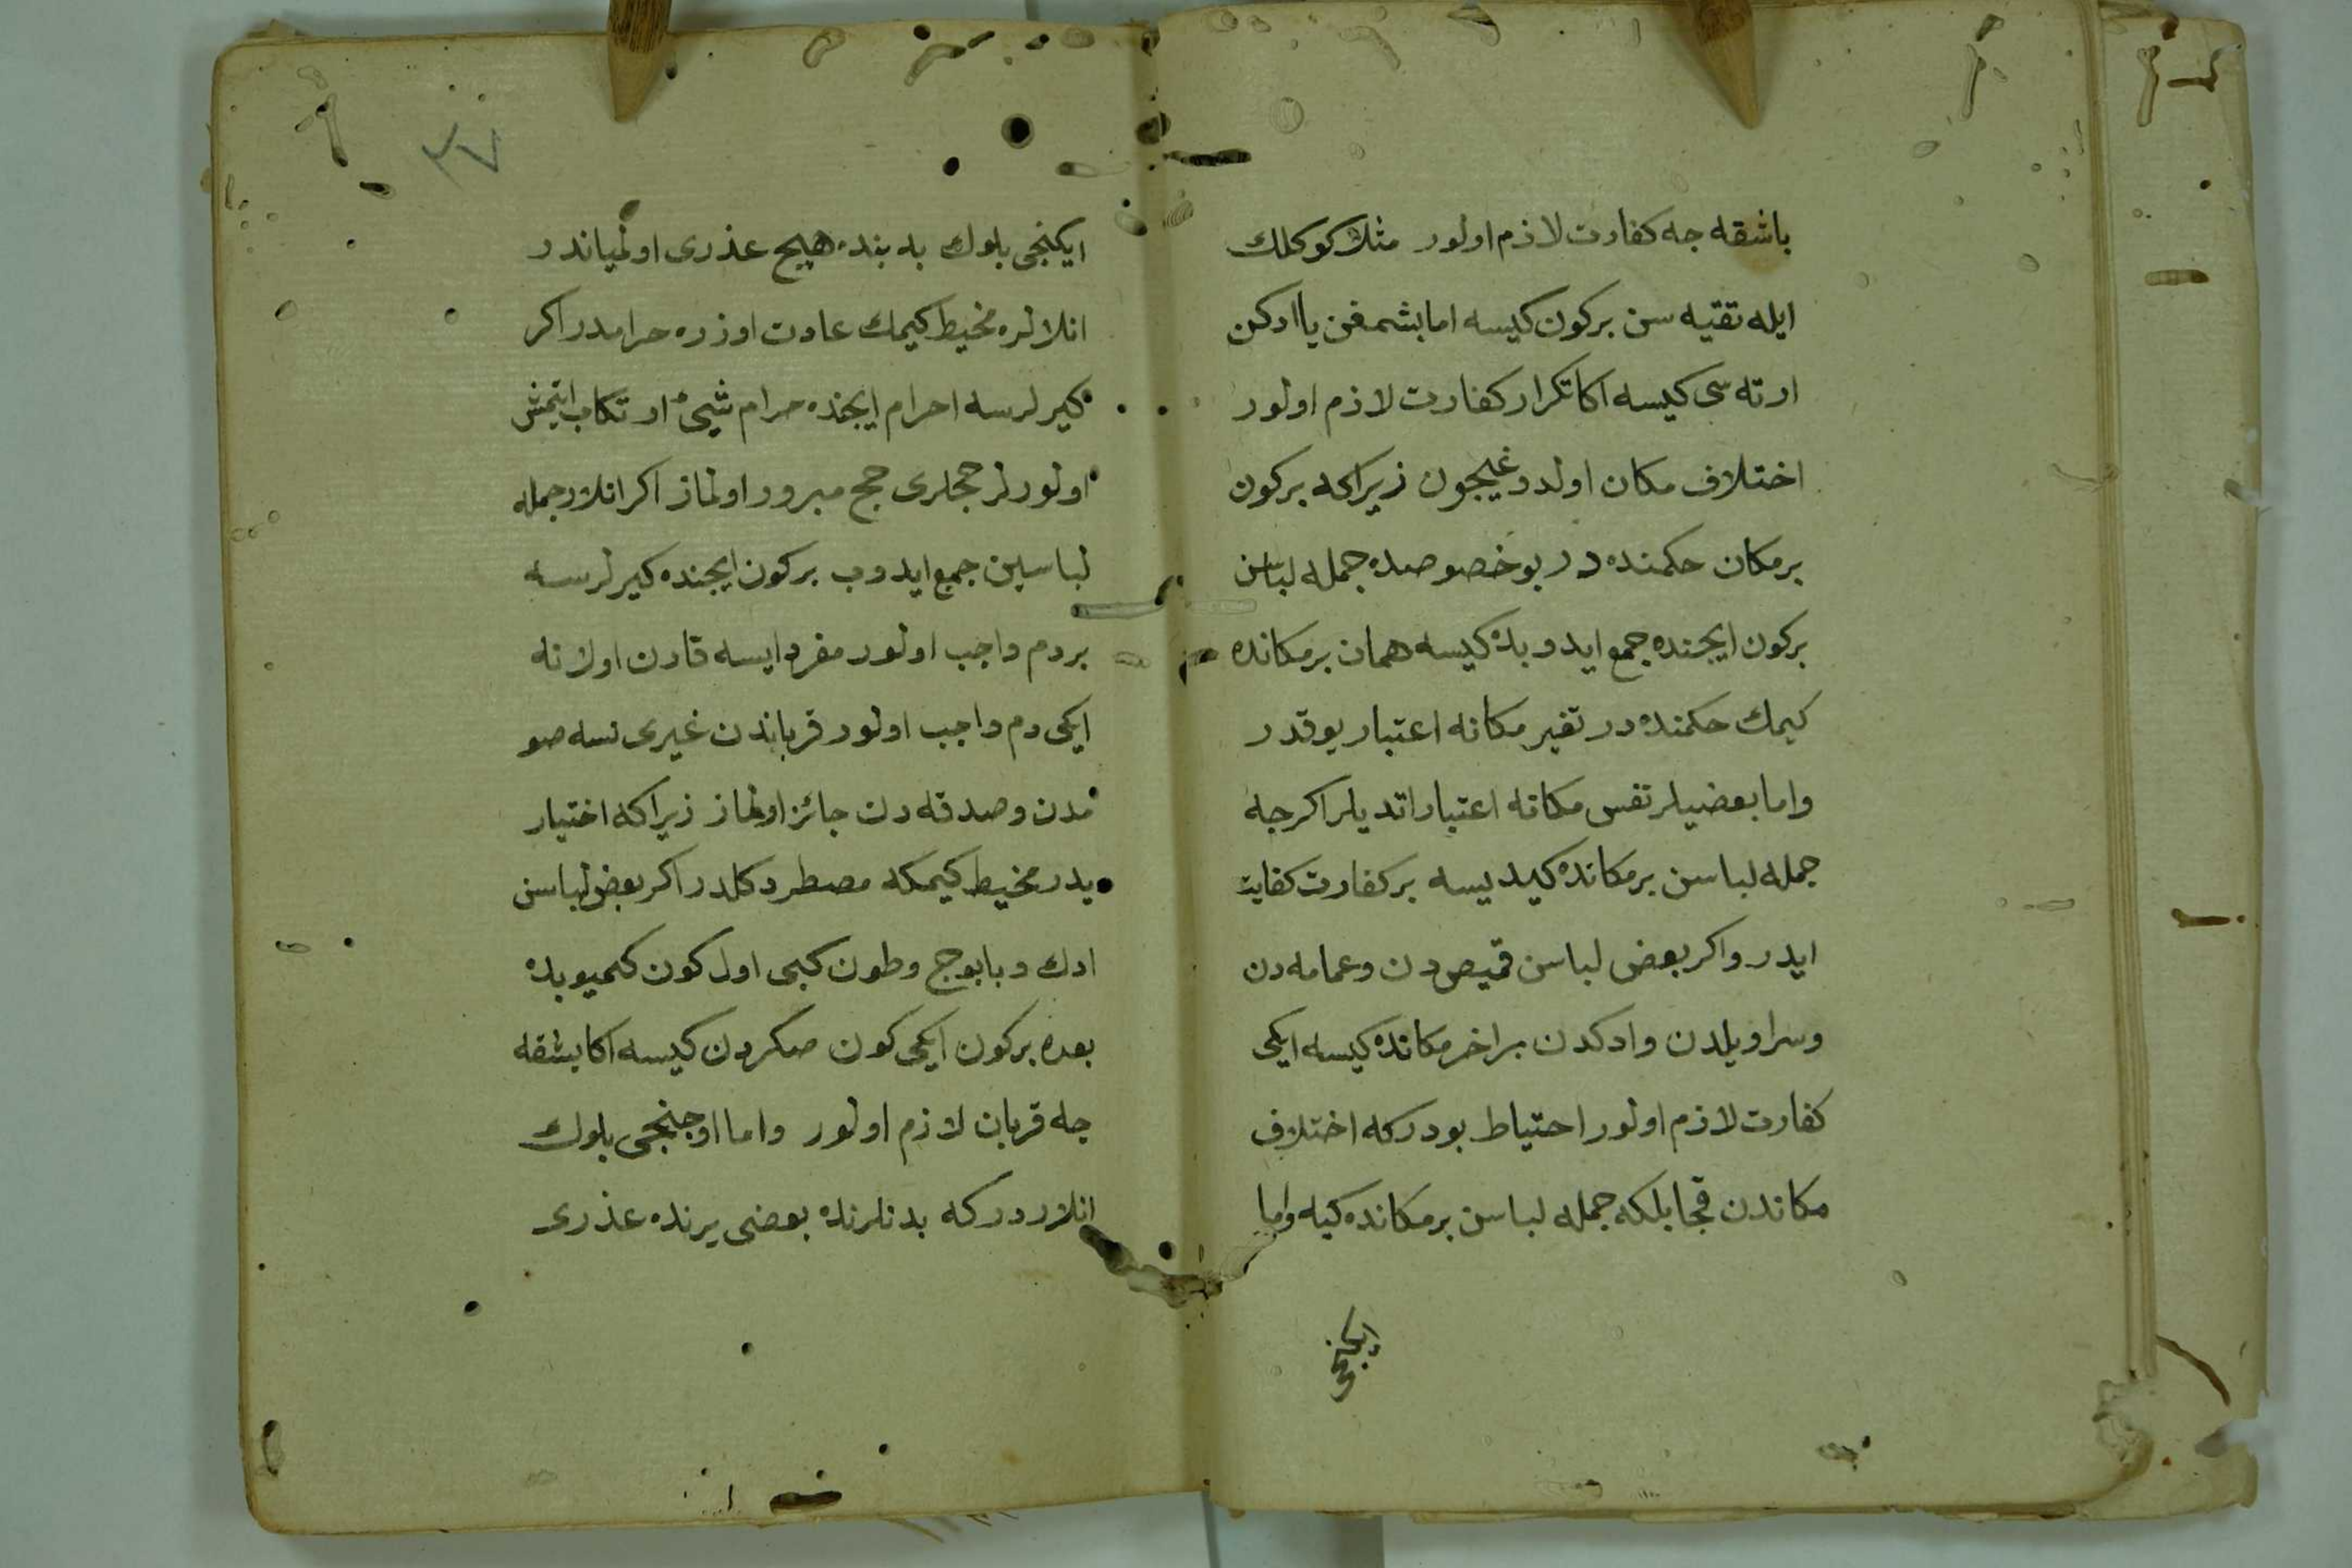 باشقه جه كفارت لازم اولور مثلا كوكلك
ايله تقيه سن بركون كيسه اما بشمغن يا ادكن
ارته سى كيسه اكا تكرار كفارت لازم اولور
اختلاف مكان اولدوغيچون زيراكه بركون
برمكان حكمنده در بو خصوصده جمله لباسن
بركون ايچنده جمع ايدوبده كيسه همان برمكانده
كيمك حكمنده در تغير مكانه اعتبار يوقدر
واما بعضيلر نفس مكانه اعتبار اتديلر اكرجه
جمله لباسن برمكانده كيديسه بر كفارت كفايت
ايدر واكر بعض لباسن قميص دن وعمامه دن
وسراويلدن وادكدن براخر مكانده كيسه ايكى
كفارت لازم اولور احتياط بودركه اختلاف
مكاندن قچا بلكه جمله لباسن برمكانده كيه واما
ايكنجى
٣٧
ايكنجى بلوك بدبنده هيچ عذرى اولمياندر
انلارلره مخيط كيمك عادت اوزره حرامدر اكر
كيرلرسه احرام ايچنده حرام شيئ ارتكاب ايتمش
اولورلر حجلرى حج مبرور اولماز اكر انلار جمله
لباسلين جمع ايدوب بركون ايچنده كيرلرسه
بردم واجب اولور مفرد ايسه قارن اولانه
ايكى دم واجب اولور قرباندن غيرى نسه صو
مدن وصدقه دن جائز اولماز زيراكه اختيار
يدر مخيط كيمكه مضطر دكلدر اكر بعض لباسن
ادك وبابوج وطون كبى اول كون كميوبده
بعده بركون ايكى كون صكره دن كيسه اكا بشقه
جه قربان لازم اولور واما اوچنجى بلوك
انلاردر كه بدنلرنده بعضى يرنده عذرى